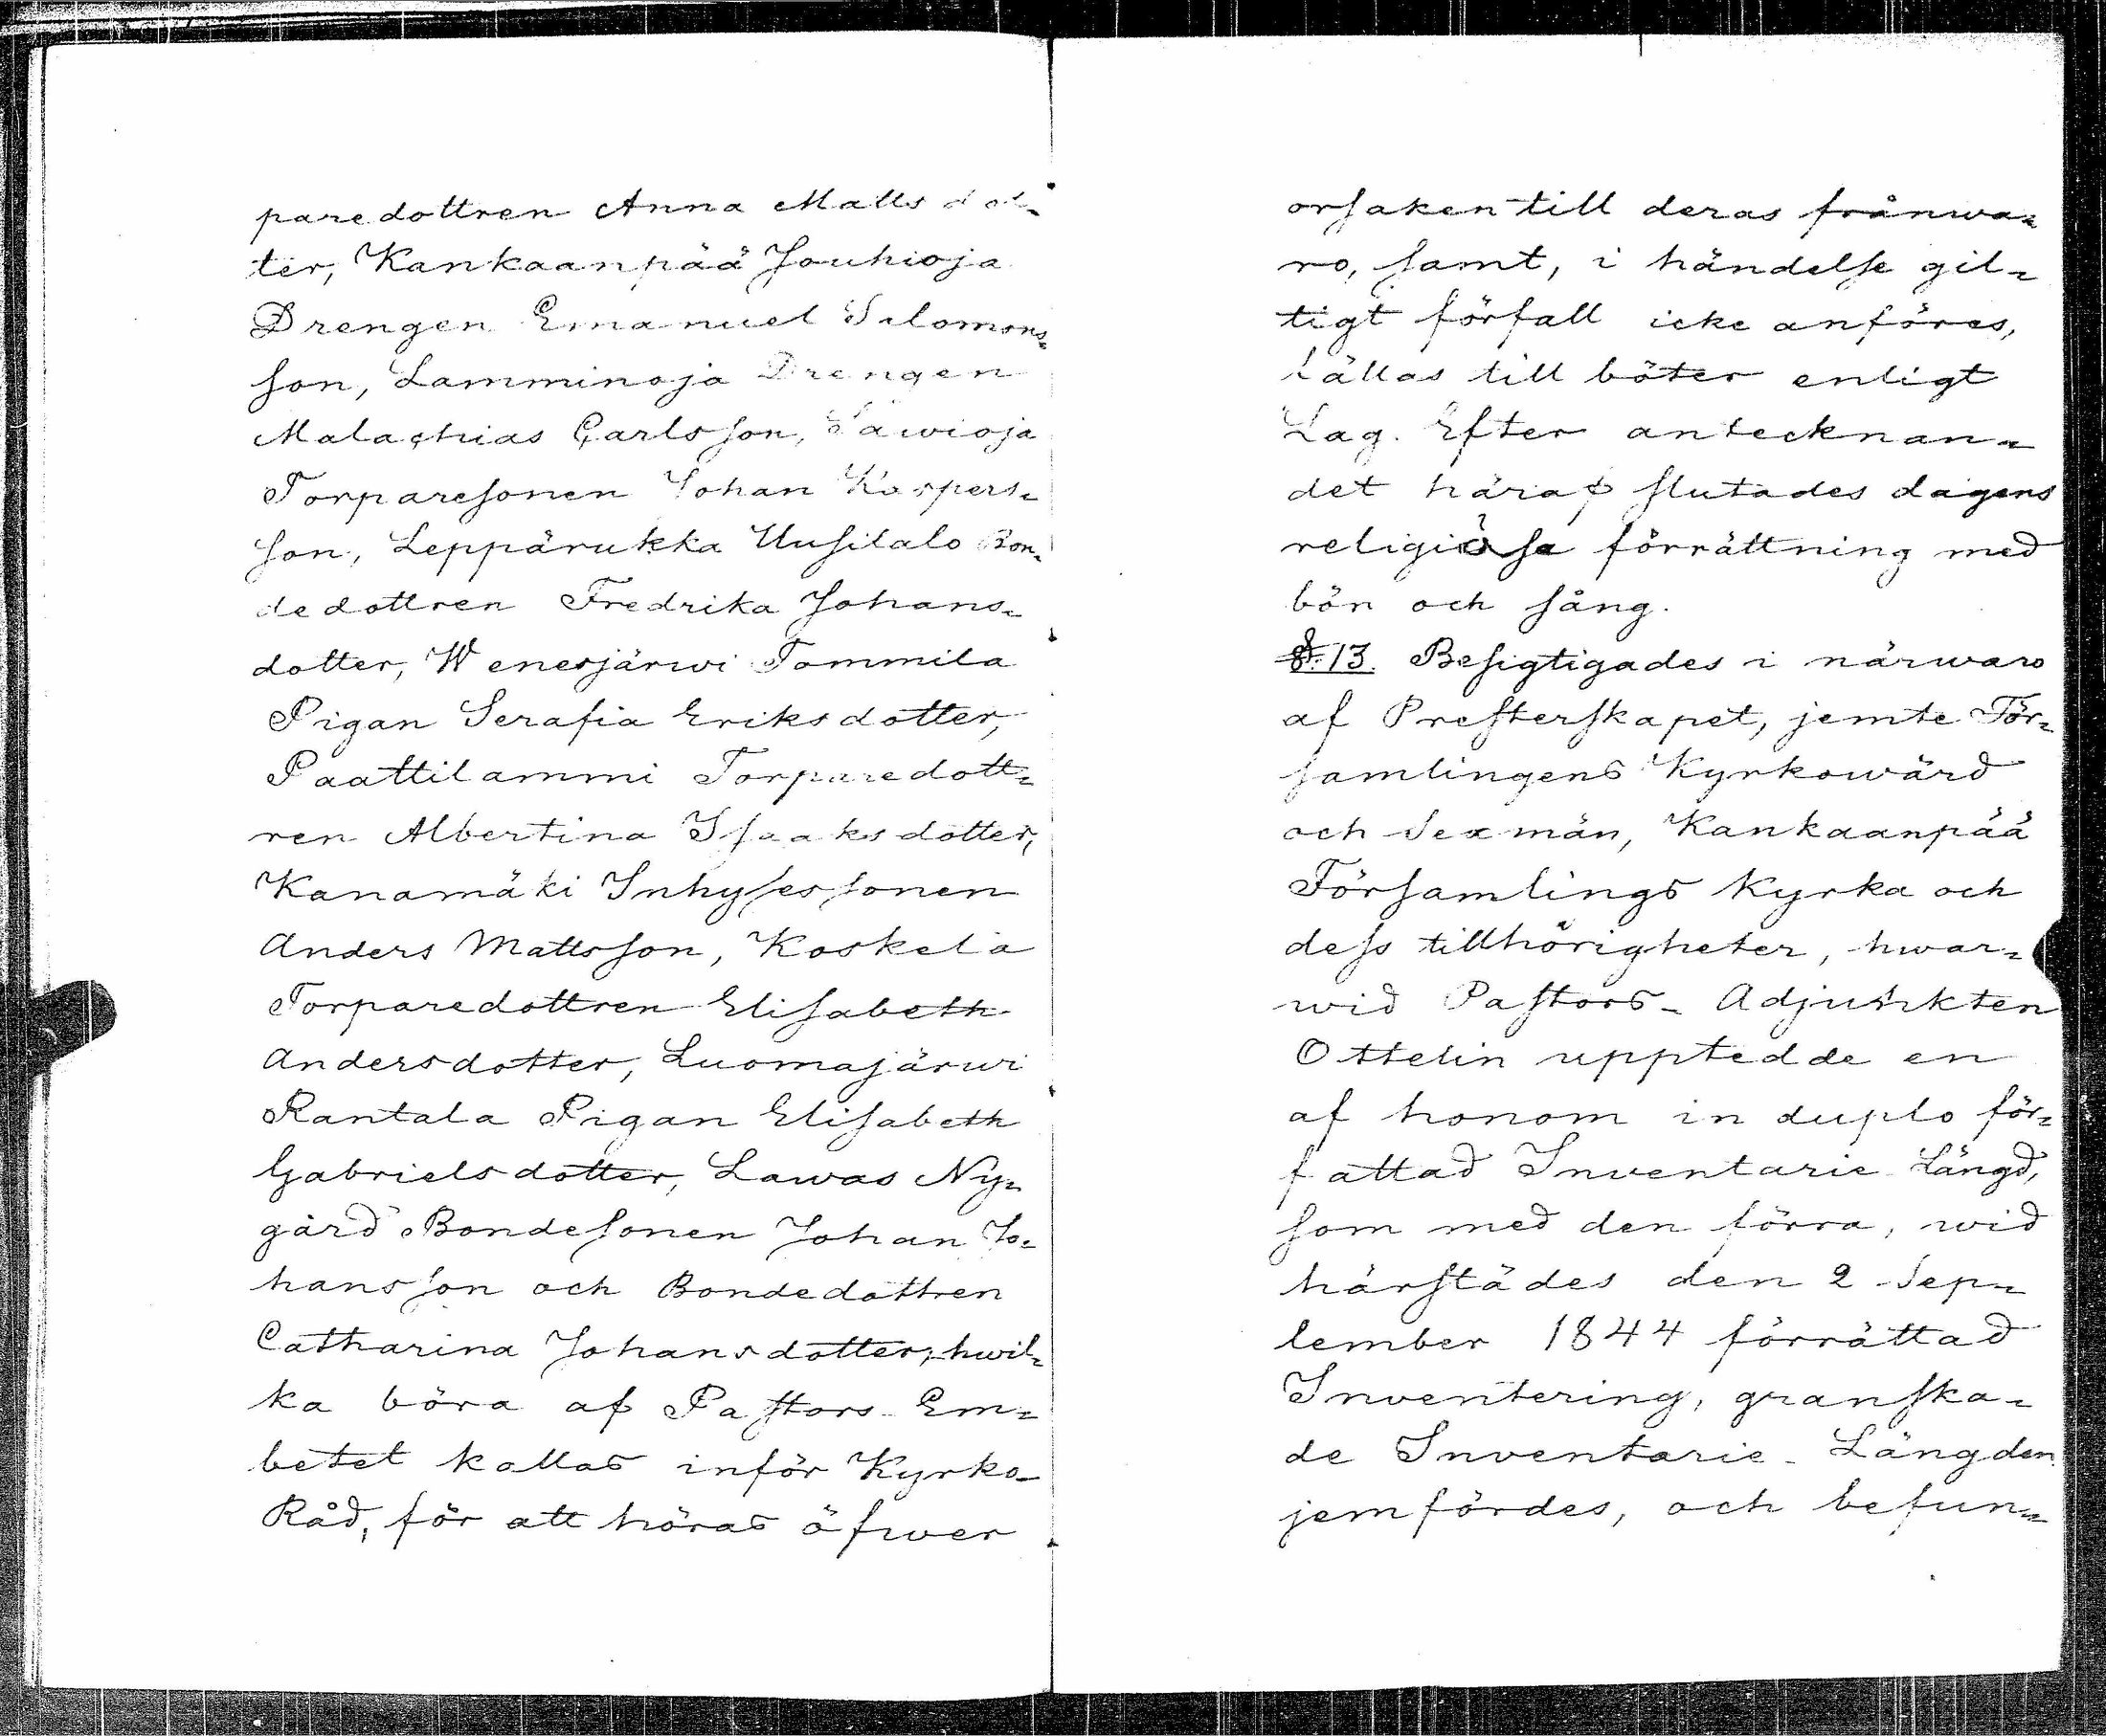 paredottren Anna Matts dot=
ter, Kankaanpää Jouhioja
Drengen Emanuel Salomons=
son, Lamminoja Drengen
Malachias Carlsson, Sawioja
Torparesonen Johan Kaspers=
son, Leppärukka Uusitalo Bon=
dedottren Fredrika Johans=
dotter, Wenesjärwi Tommila
Pigan Serafia Eriksdotter,
Paattilammi Torparedott=
ren Albertina Isaaksdotter,
Kanamäki Inhysessonen
Anders Mattsson, Koskela
Torparedottren Elisabeth
Andersdotter, Luomajärwi
Rantala Pigan Elisabeth
Gabrielsdotter, Lawas Ny=
gård Bondesonen Johan Jo=
hansson och Bondedottren
Catharina Johansdotter, hwil=
ka böra af Pastors-Em=
betet kallas inför Kyrko-
Råd, för att höras öfwer
orsaken till deras frånwa=
ro, samt, i händelse gil=
tigt förfall icke anföres,
fällas till böter enligt
Lag. Efter antecknan=
det häraf slutades dagens
religiösa förrättning med
bön och sång.
§. 13. Besigtigades i närwaro
af Presterskapet, jemte För=
samlingens Kyrkowärd
och Sexmän, Kankaanpää
Församlings Kyrka och
dess tillhörigheter, hwar=
wid Pastors-Adjunkten
Ottelin upptedde en
af honom in duplo för=
fattad Inventarie Längd,
som med den förra, wid
härstädes den 2 Sep=
tember 1844 förrättad
Inventering, granska=
de Inventarie-Längden
jemfördes, och befun=